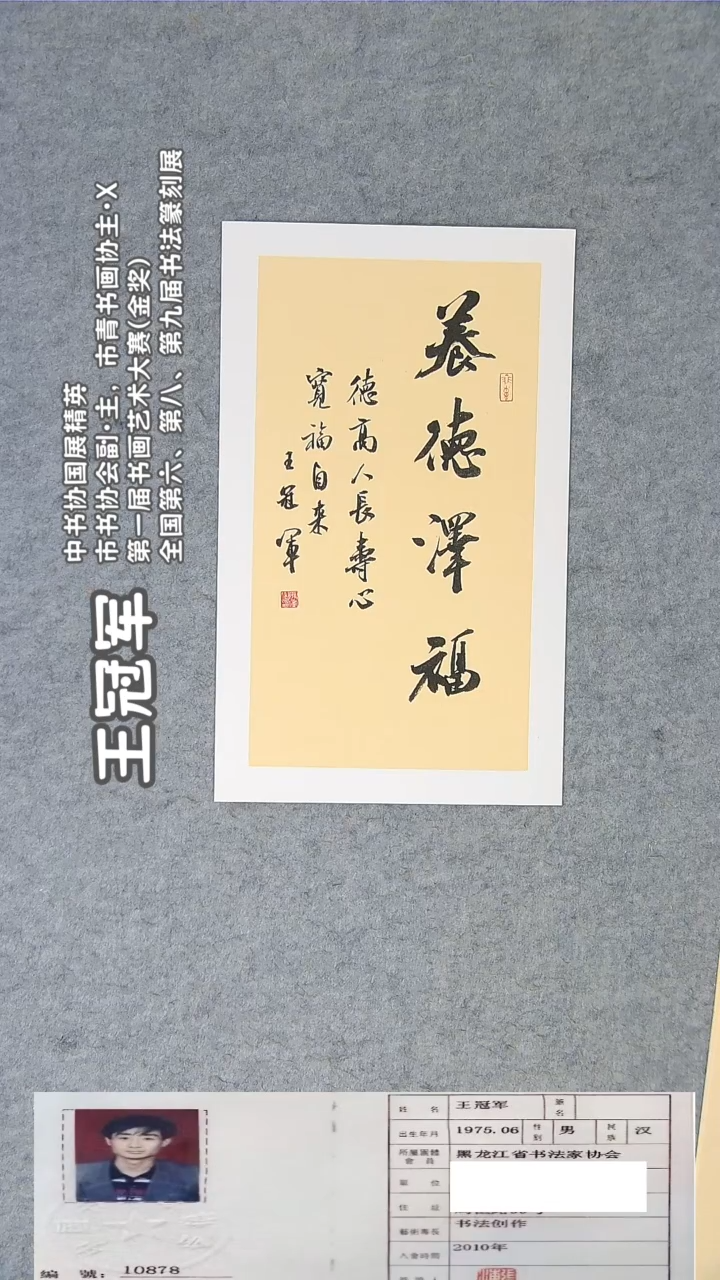 中书协国展精英
市书协会副·主，市青书画协主·X
第一届书画艺术大赛(金奖)
全国第六、第八、第九届书法篆刻展
王冠军
养德澤福
德高人長壽心
寬福自来
王冠軍
姓名 王冠军 筆名
出生年月 1975.06 性别 男 民族 汉
所屬團體會員 黑龙江省书法家协会
單位
住址
藝術專長 书法创作
入會時間 2010年
編號：10878